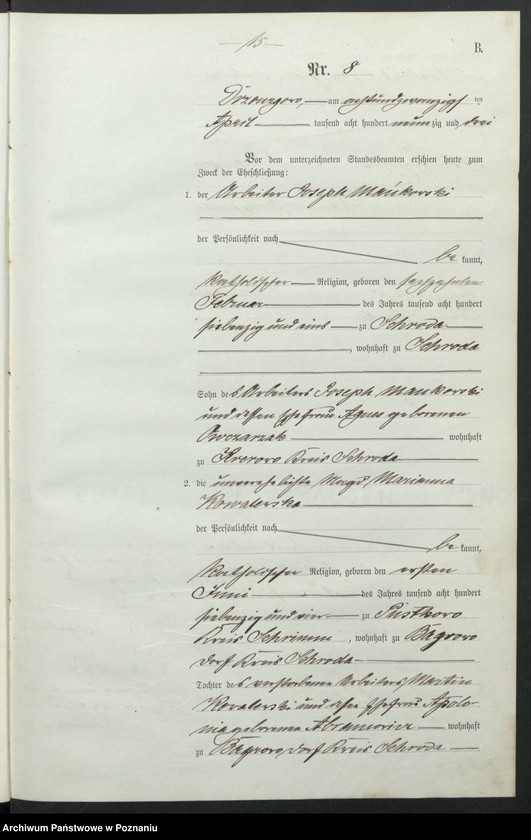 — 15 —
B.
Nr. 8
am achtundzwanzigsten
April tausend acht hundert neunzig und drei
Vor dem unterzeichneten Standesbeamten erschien heute zum
Zweck der Eheschließung:
1. der Arbeiter Joseph Mańkowski
der Persönlichkeit nach
be kannt,
katholischer Religion, geboren den
Februar des Jahres tausend acht hundert
siebenzig und eins zu Schroda
, wohnhaft zu Schroda
Sohn des Arbeiters Joseph Mankowski
und dessen Ehefrau Agnes geborenen
Owczarzak wohnhaft
zu Krerowo Kreis Schroda
2. die unverehelichte Magd, Marianna
Kowalewska
der Persönlichkeit nach
be kannt,
katholischer Religion, geboren den ersten
Juni des Jahres tausend acht hundert
siebenzig und vier zu
Kreis Schrimm, wohnhaft zu Bagrowo
Dorf Kreis Schroda
Tochter des verstorbenen Arbeiters Martin
Kowalewski und dessen Ehefrau Apolo-
nia geborenen Abramowicz wohnhaft
zu Bagrowo, Dorf Kreis Schroda
Archiwum Państwowe w Poznaniu